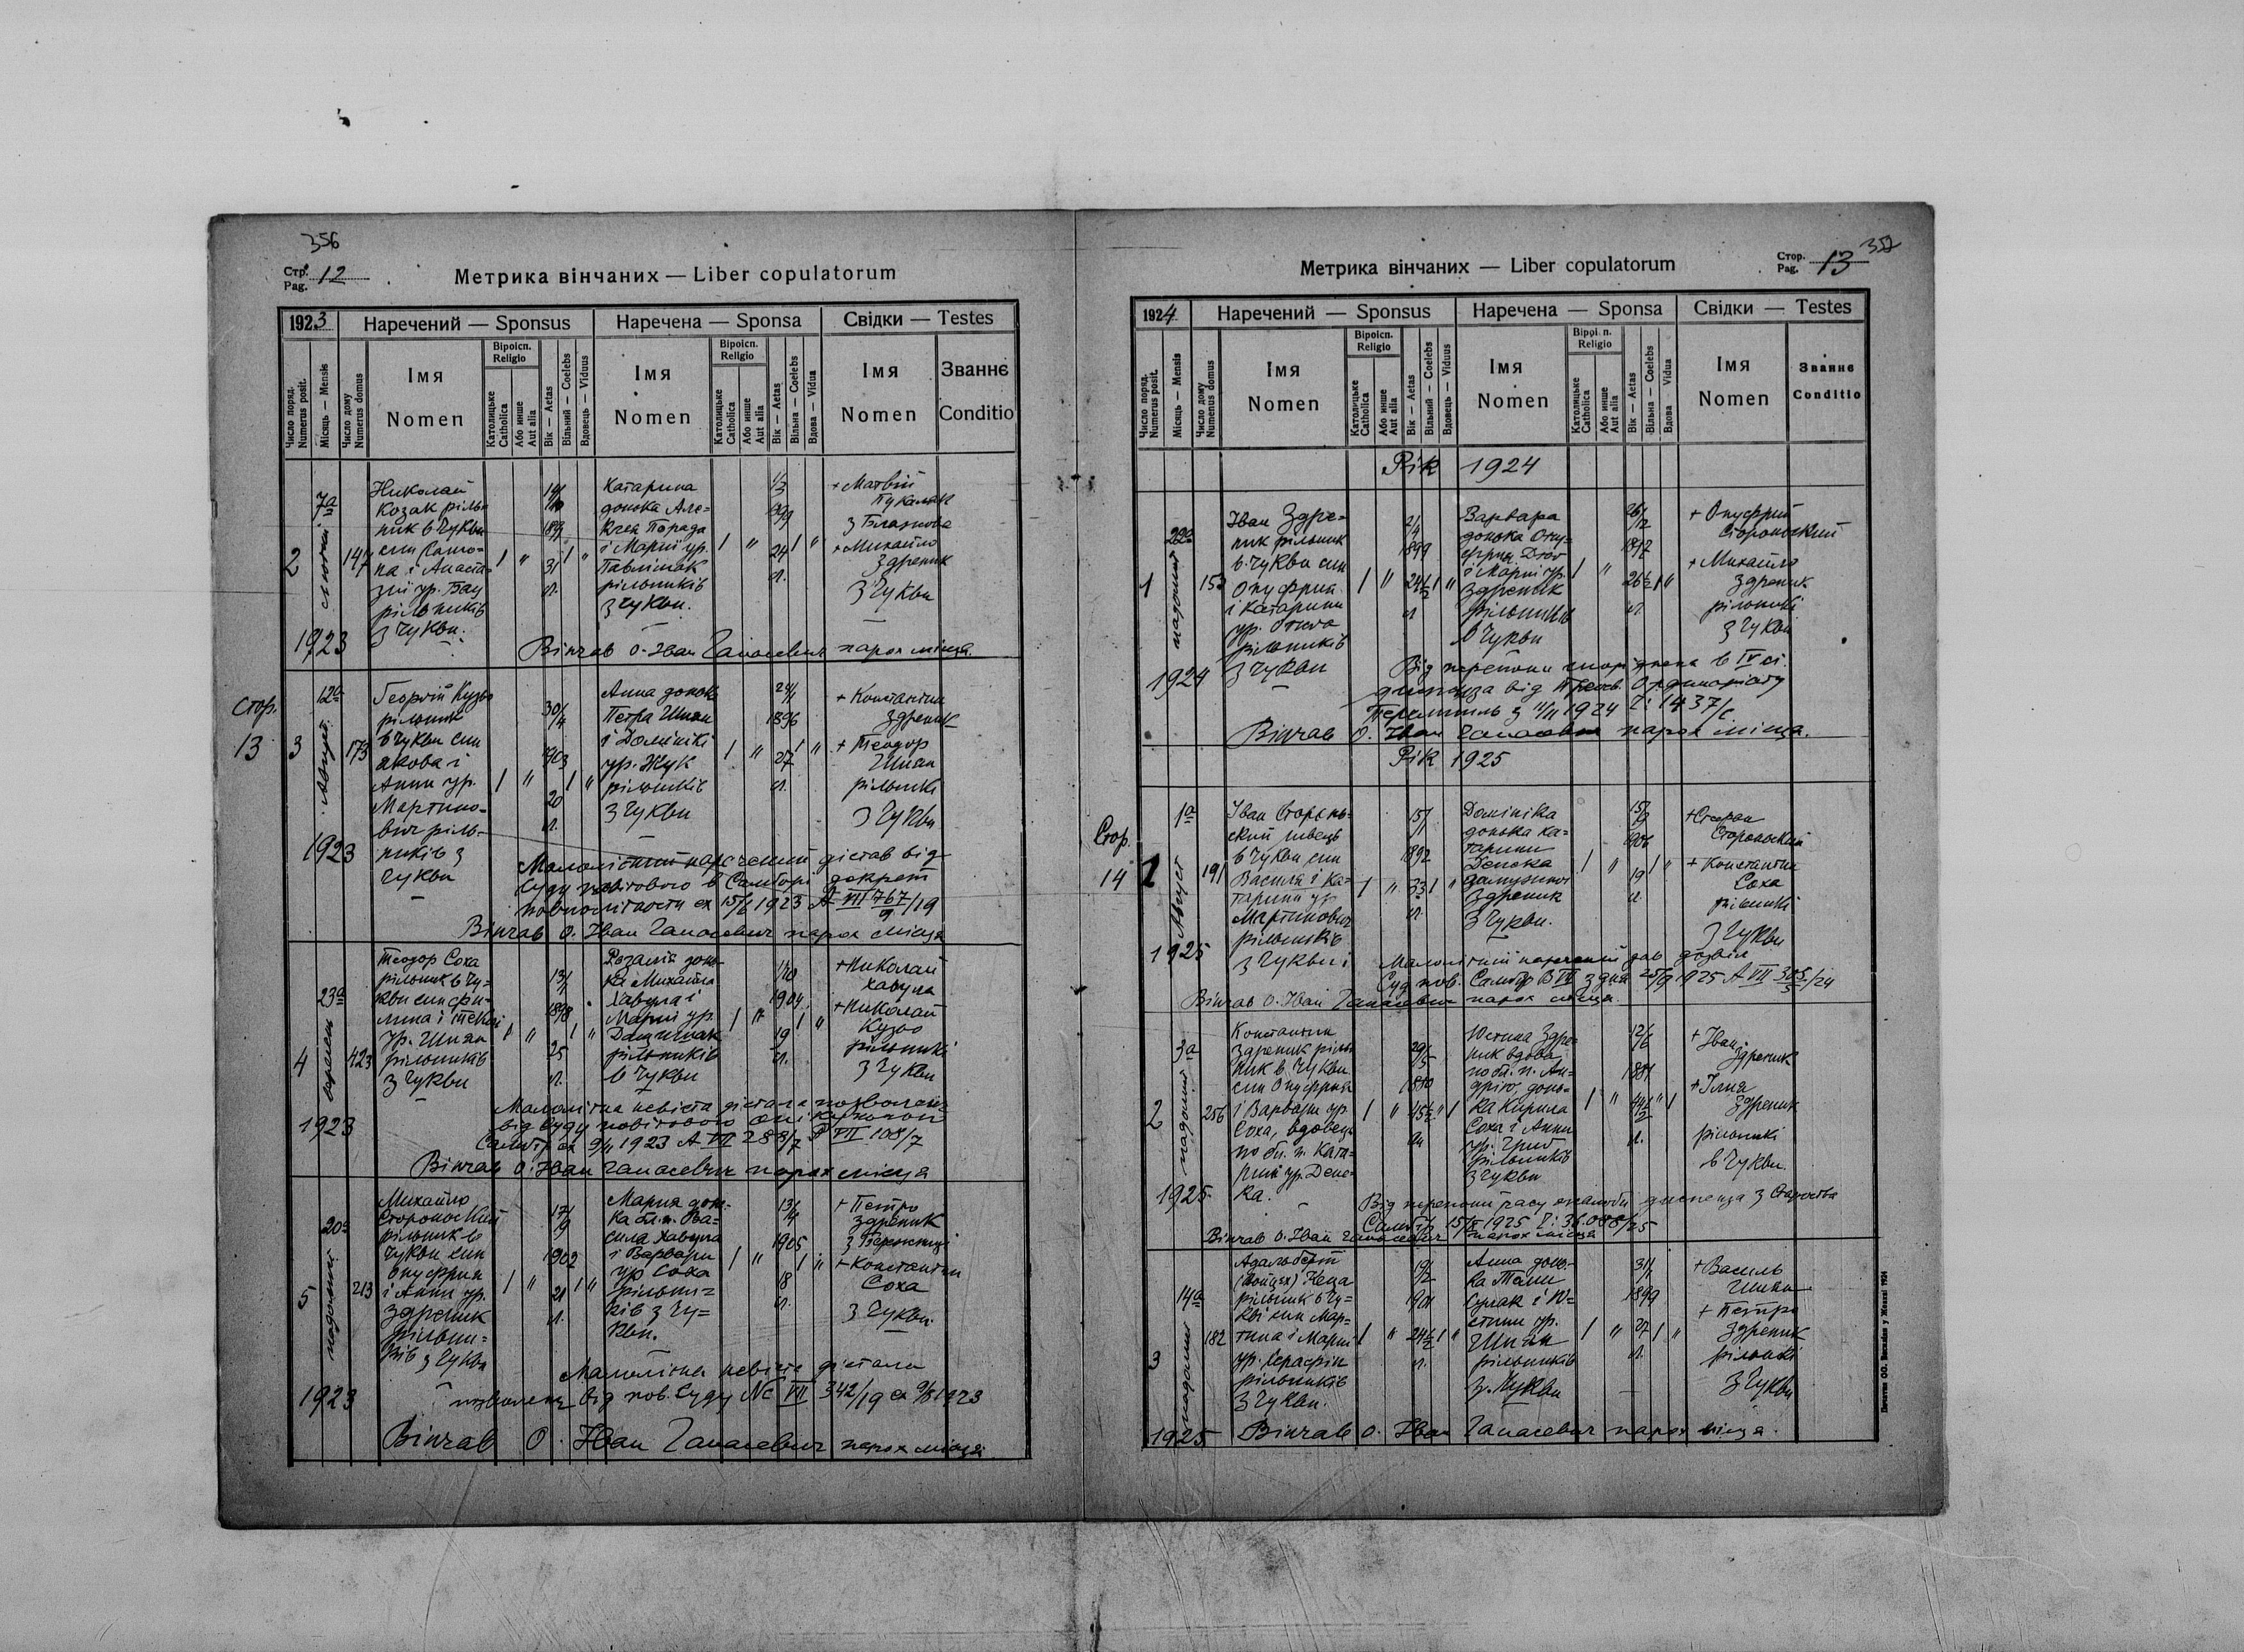 356
Стр. 12
Pag.
Метрика вінчаних — Liber copulatorum
1923
Наречений — Sponsus
Наречена — Sponsa
Свідки — Testes
Число поряд. Numerus posit.
Місяць — Mensis
Число дому Numerus domus
Імя
Nomen
Віроісп.
Religio
Католицьке Catholica
Або инше Aut alia
Вік — Aetas
Вільний — Coelebs
Вдовець — Viduus
Імя
Nomen
Віроісп.
Religio
Католицьке Catholica
Або инше Aut alia
Вік — Aetas
Вільна — Coelebs
Вдова — Vidua
Імя
Nomen
Званнє
Conditio
2
7а
лютий
1923
147
Николай
Козак ріль-
ник в Чукви
син
на і Анаста-
зії ур. Бац
рільників
з Чукви.
31
л.
Катарина
донька Але-
ксея Порада
і Марії ур.
Павлішак
рільників
з Чукви.
24
л.
+ Матвій
з Блажова
+ Михайло
Здреник
з Чукви
Вінчав о. Іван Чапасевич парох місця.
Стор.
13
3
12а
Август
1923
173
Георгій Кузьо
рільник
в Чукви син
Якова і
Анни ур.
Мартино-
вич ріль-
ників з
Чукви
30/4
1903
20
л.
Анна донька
Петра Шпак
і Домініки
ур. Жук
рільників
з Чукви
24/1
1896
27
л.
+ Константин
Здреник
+ Теодор
Шпак
рільники
з Чукви
Малолітний наречений дістав від
Суду повітового в Самборі декрет
повнолітности ex 15/6 1923 A VII 767/19
Вінчав о. Іван Чапасевич парох місця
4
23а
1923
423
Теодор Соха
рільник в Чу-
кви син Фи-
липа і Теклі
ур. Шпак
рільників
з Чукви
13/1
1898
25
л.
Розалія донь-
ка Михайла
Хавула і
Марії ур.
рільників
в Чукви
1904
19
л.
+ Николай
Хавула
+ Николай
Кузьо
рільники
з Чукви
Малолітна невіста дістала позволення
від Суду повітового опікунчого
Самбір ex 9/11 1923 A VII 288/7 P VII 108/7
Вінчав о. Іван Чапасевич парох місця
5
20а
падолист
1923
213
Михайло
Сторонський
рільник в
Чукви син
Онуфрия
і Анни ур.
Здреник
рільни-
ків з Чукви
17/9
1902
21
л.
Мария донь-
ка бл. п. Ва-
силя Хавула
і Варвари
ур Соха
рільни-
ків з Чу-
кви.
13/14
1905
18
л.
+ Петро
Здреник
+ Константин
Соха
з Чукви.
Малолітна невіста дістала
позволення від пов. Суду Nc VII 342/19 ex 1923
Вінчав О. Іван Чапасевич парох місця.
357
Стор. 13
Pag.
Метрика вінчаних — Liber copulatorum
1924
Наречений — Sponsus
Наречена — Sponsa
Свідки — Testes
Число поряд. Numerus posit.
Місяць — Mensis
Число дому Numenus domus
Імя
Nomen
Віроісп.
Religio
Католицьке Catholica
Або инше Aut alia
Вік — Aetas
Вільний — Coelebs
Вдовець — Viduus
Імя
Nomen
Віроі. п.
Religio
Католицьке Catholica
Або инше Aut alia
Вік — Aetas
Вільна — Coelebs
Вдова Vidua
Імя
Nomen
Званнє
Conditio
Рік 1924
1
22а
падолист
1924
153
Іван Здре-
ник рільник
в Чукви син
Онуфрия
і Катарини
ур.
рільників
з Чукви
2/4
1899
24½
л
Варвара
донька Ону-
фрия
і Марії ур.
Здреник
рільників
в Чукви
26/12
1897
26½
л
+ Онуфрий
Сторонський
+ Михайло
Здреник
рільники
з Чукви
Від перепони споріднення в IV ст.
диспенза від Преосв. Ординаріяту
Перемишль з 11/11 1924 Ч: 1437/с.
Вінчав О. Іван Чапасевич парох місця.
Рік 1925
Стор.
14
1
1а
Август
1925
191
Іван Сторонь-
ский швець
в Чукви син
Василя і Ка-
тарини ур
Мартинович
рільників
з Чукви
15/1
1892
33
л.
Домініка
донька Ка-
тарини
Денека
замужної
Здреник
з Чукви.
15/9
1906
19
л.
+ Стефан
Сторонський
+ Константин
Соха
рільники
з Чукви
Суд пов. Самбір
Вінчав О. Іван Чапасевич парох місця.
2
3а
падолист
1925.
256
Константин
Здреник ріль-
ник в Чукви
син Онуфрия
і Варвари ур
Соха, вдовець
по бл. п. Ката-
рині ур. Дене-
ка.
29/5
1880
45½
Юстина Здре-
ник вдова
по бл. п. Ан-
дрію, донь-
ка Кирила
Соха і Анни
ур. Гриб
рільників
з Чукви
12/6
1881
44½
л.
+ Іван
Здреник
+ Ілия
Здреник
рільники
в Чукви.
Від перепони часу жалоби диспенза з Староства
Самбір 15/X 1925 Ч: 36.088/25
Вінчав О. Іван Чапасевич парох місця
3
14а
падолист
1925
182
Адальберт
(Войцєх) Кеца
рільник в Чу-
кві син Мар-
тина і Марії
ур. Серафін
рільників
з Чукви.
19/2
1901
24½
л.
Анна донь-
ка Тани
Сулак і Ю-
стини ур.
Шпак
рільників
з Чукви
31/1
1899
27
л.
+ Василь
Шпак
+ Петро
Здреник
рільники
з Чукви
Вінчав о. Іван Чапасевич парох місця.
Печатня ОО. Василіян у Жовкві 1924